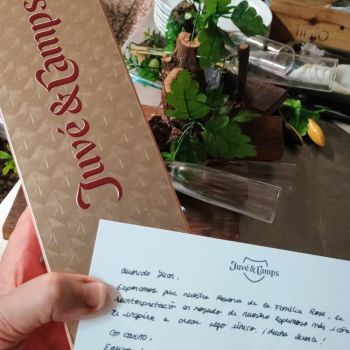 Juvé & Camps
Juvé & Camps
Esperamos que nuestra Reserva de la Familia Rosé, la
reinterpretación en rosado de nuestro espumoso más icóni
te inspire a crear algo único. ¡Mucha suerte!
Con cariño,